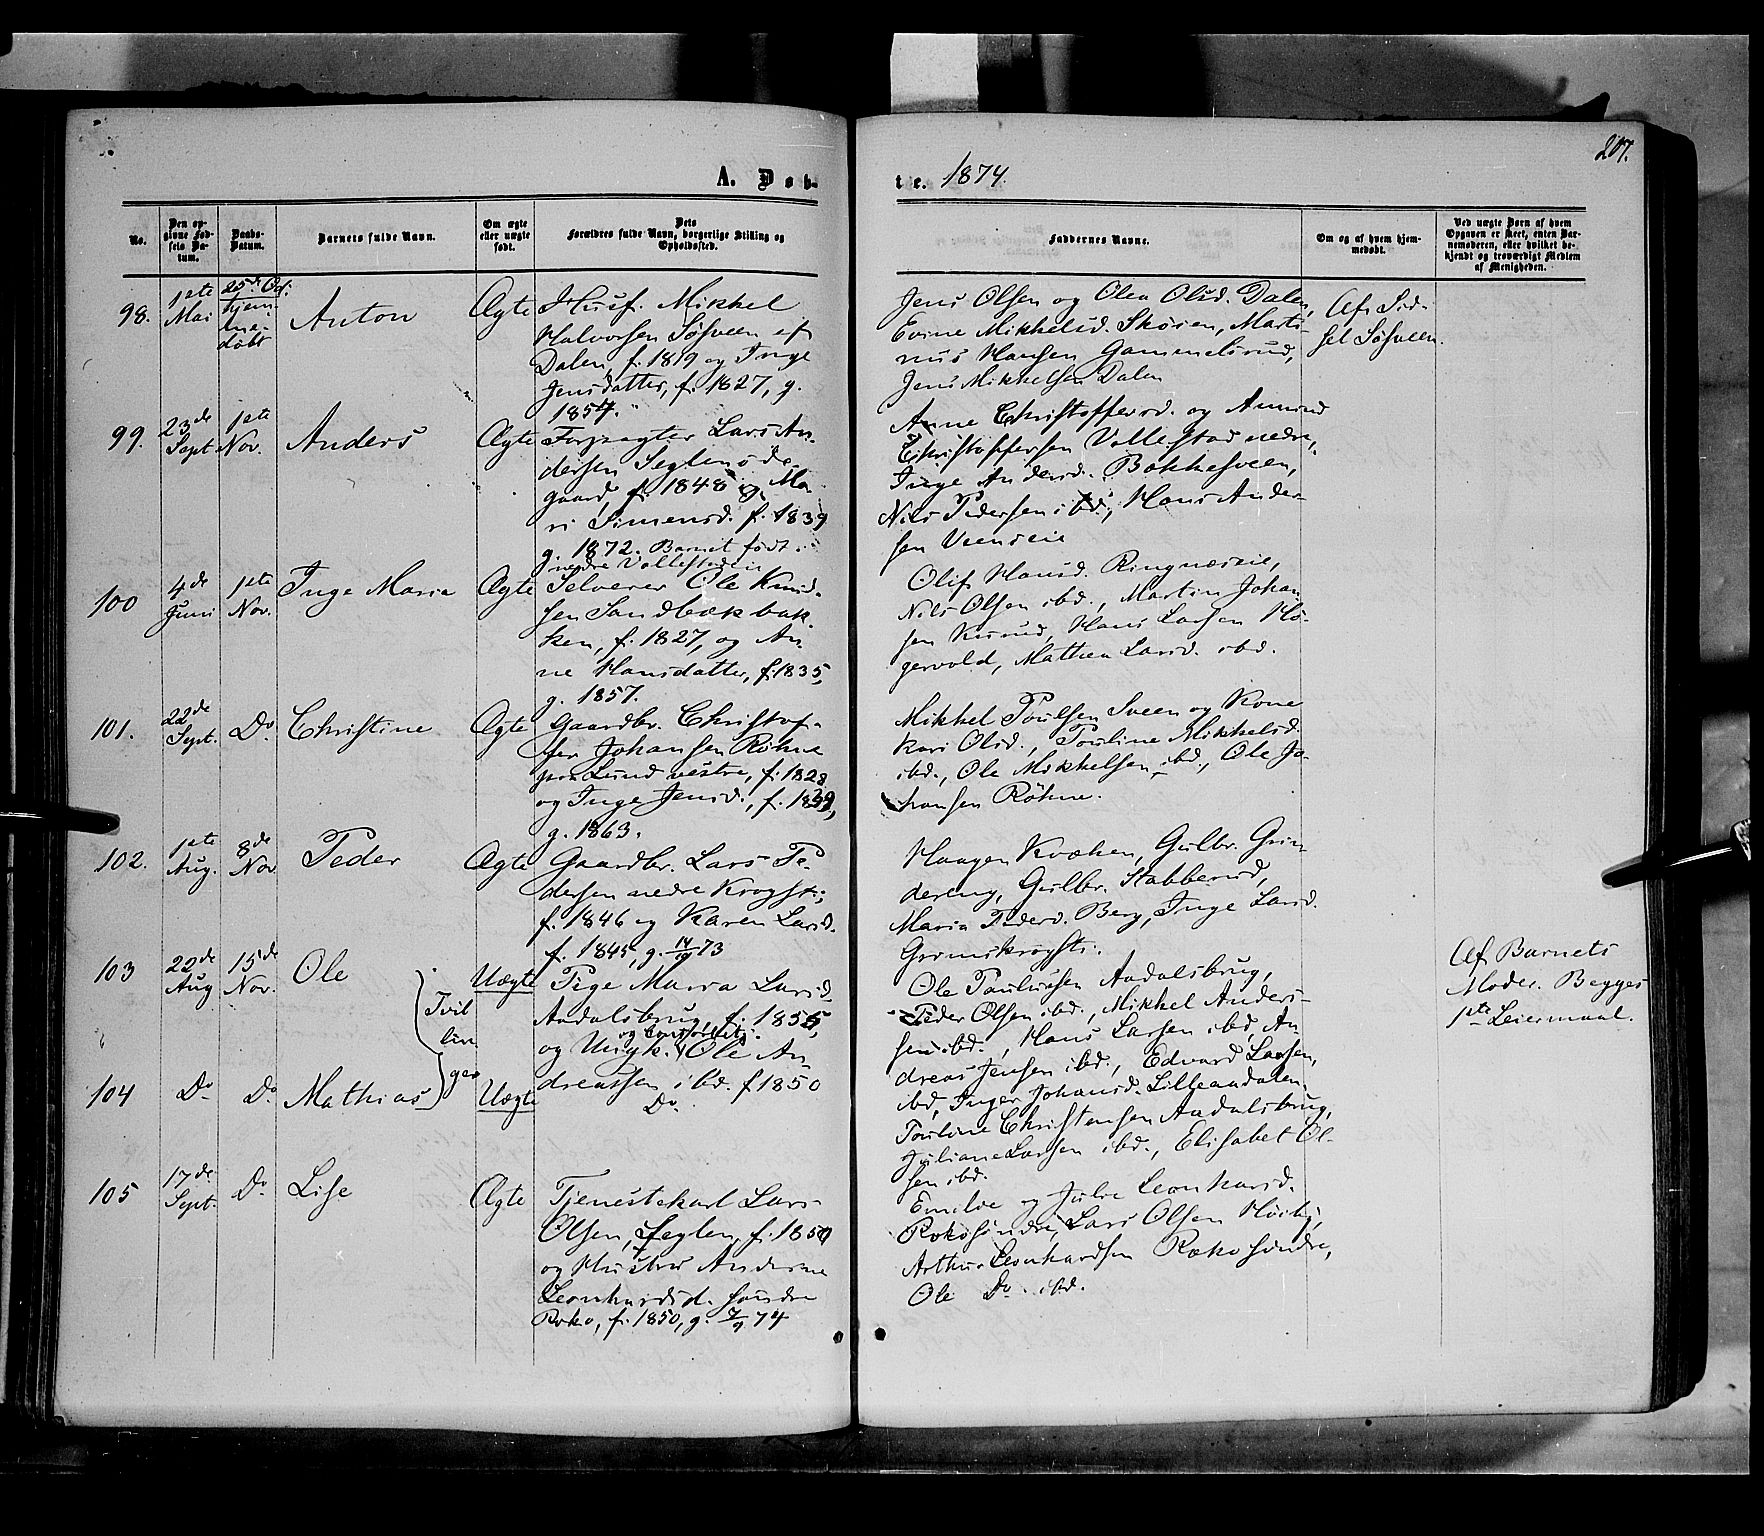 207.
A. Døb-
t e. 1874.
No.
Den op-
givne Fød-
sels Da-
tum.
Daabs-
Datum.
Barnets fulde Navn.
Om ægte
eller uægte
født.
Dets
Forældres fulde Navn, borgerlige Stilling og
Opholdssted.
Faddernes Navne.
Om og af hvem hjem-
medøbt.
Ved uægte Børn af hvem
Opgaven er skeet, enten Bar-
nemoderen, eller hvilket be-
kjendt og troværdigt Medlem
af Menigheden.
98.
1ste
Mai
25de Oct.
hjem-
me-
døbt
Anton
Ægte
Husf. Mikkel
Halvorsen Søsveen
Dalen, f. 1819 og Inge
Jensdatter, f. 1827, g.
1854.
Jens Olsen og Olea Olsd. Dalen,
Evine Mikkelsd. Skøien, Marti-
nus Hansen Gammelsrud,
Jens Mikkelsen Dalen
Af Sid-
sel Søsveen.
99.
23de
Sept
1ste
Nov.
Anders
Ægte
Forpagter Lars An-
dersen Seglen øde-
gaard, f. 1848 og Ma-
ri Simensd. f. 1839
g. 1872. Barnet født i
nedre Vollestadeie
Anne Christoffersd. og Amund
Christoffersen Vollestad nedre,
Inge Andersd. Bakkesveen,
Nils Pedersen ibd., Hans Ander-
sen Veenseie
100
4de
Juni
1ste
Nov.
Inge Maria
Ægte
Selveier Ole Knud-
sen Sandbækbak-
ken, f. 1827, og An-
ne Hansdatter, f. 1835,
g. 1857.
Olif Hansd. Ringnæseie,
Nils Olsen ibd., Martin Johan-
sen Kurud, Hans Larsen Hø-
gervold, Mathea Larsd. ibd.
101.
22de
Sept.
Do
Christine
Ægte
Gaardbr. Christof-
fer Johansen Røhne
paa Lund vestre, f. 1828
og Inge Jensd., f. 1839,
g. 1863.
Mikkel Poulsen Sveen og Kone
Kari Olsd., Pouline Mikkelsd.
ibd., Ole Mikkelsen ibd., Ole Jo-
hansen Røhne.
102.
1ste
Aug.
8de
Nov
Peder
Ægte
Gaardbr. Lars Pe-
dersen nedre Krogsti,
f. 1846 og Karen Larsd.
f. 1845, g. 73
Haagen Kvæken, Gulbr. Grin-
dereng, Gulbr. Stabberud,
Maria Pedersd. Berg, Inge Larsd.
Grimskrogsti.
103
22de
Aug
15de
Nov.
Ole
Tvil
lin
ger
Uægte
Pige Maria Larsd.
Aadalsbrug, f. 1855,
og Ungk. Ole An-
dreassen ibd. f 1850
Ole Paulussen Aadalsbrug,
Peder Olsen ibd., Mikkel Anders-
sen ibd., Hans Larsen ibd, An-
dreas Jensen ibd., Edvard Larsen,
ibd, Inger Johansd. Lilleaadalen,
Pouline Christensen Aadalsbrug,
Juliane Larsen ibd., Elisabet Ol-
sen ibd.
Af Barnets
Moder. Begges
1ste Leiermaal.
104
Do
Do
Mathias
Uægte
Do
105
17de
Sept.
Do
Lise
Ægte
Tjenestekarl Lars
Olsen, Seglen, f. 1850
og Hustru Anderine
Leonhardsd. søndre
Roko, f. 1850, g. 7/9 74
Emilie og Julie Leonhardsd.
Roko søndre, Lars Olsen Høiby,
Arthur Leonhardsen Roko søndre,
Ole Do ibd.